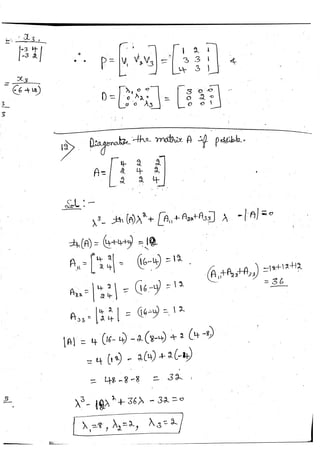 x₃
|-3 4|
|-3 2|
= x₃
(-6+12)
∴ P = [V₁ V₂ V₃] = [1 2 1
3 3 1
4 3 1] &
D = [λ₁ 0 0
0 λ₂ 0
0 0 λ₃] = [3 0 0
0 2 0
0 0 1]
12) Diagonalize the matrix A if possible.
A = [4 2 2
2 4 2
2 2 4]
Sol :-
λ³ - th(A)λ² + [A₁₁ + A₂₂ + A₃₃] λ - |A| = 0
th(A) = (4+4+4) = 12
A₁₁ = |4 2
2 4| = (16-4) = 12
A₂₂ = |4 2
2 4| = (16-4) = 12
A₃₃ = |4 2
2 4| = (16-4) = 12
(A₁₁+A₂₂+A₃₃) = 12+12+12
= 36
|A| = 4 (16-4) - 2 (8-4) + 2 (4-8)
= 4 (12) - 2(4) + 2(-4)
= 48 - 8 - 8 = 32
λ³ - 12λ² + 36λ - 32 = 0
λ₁=8, λ₂=2, λ₃=2